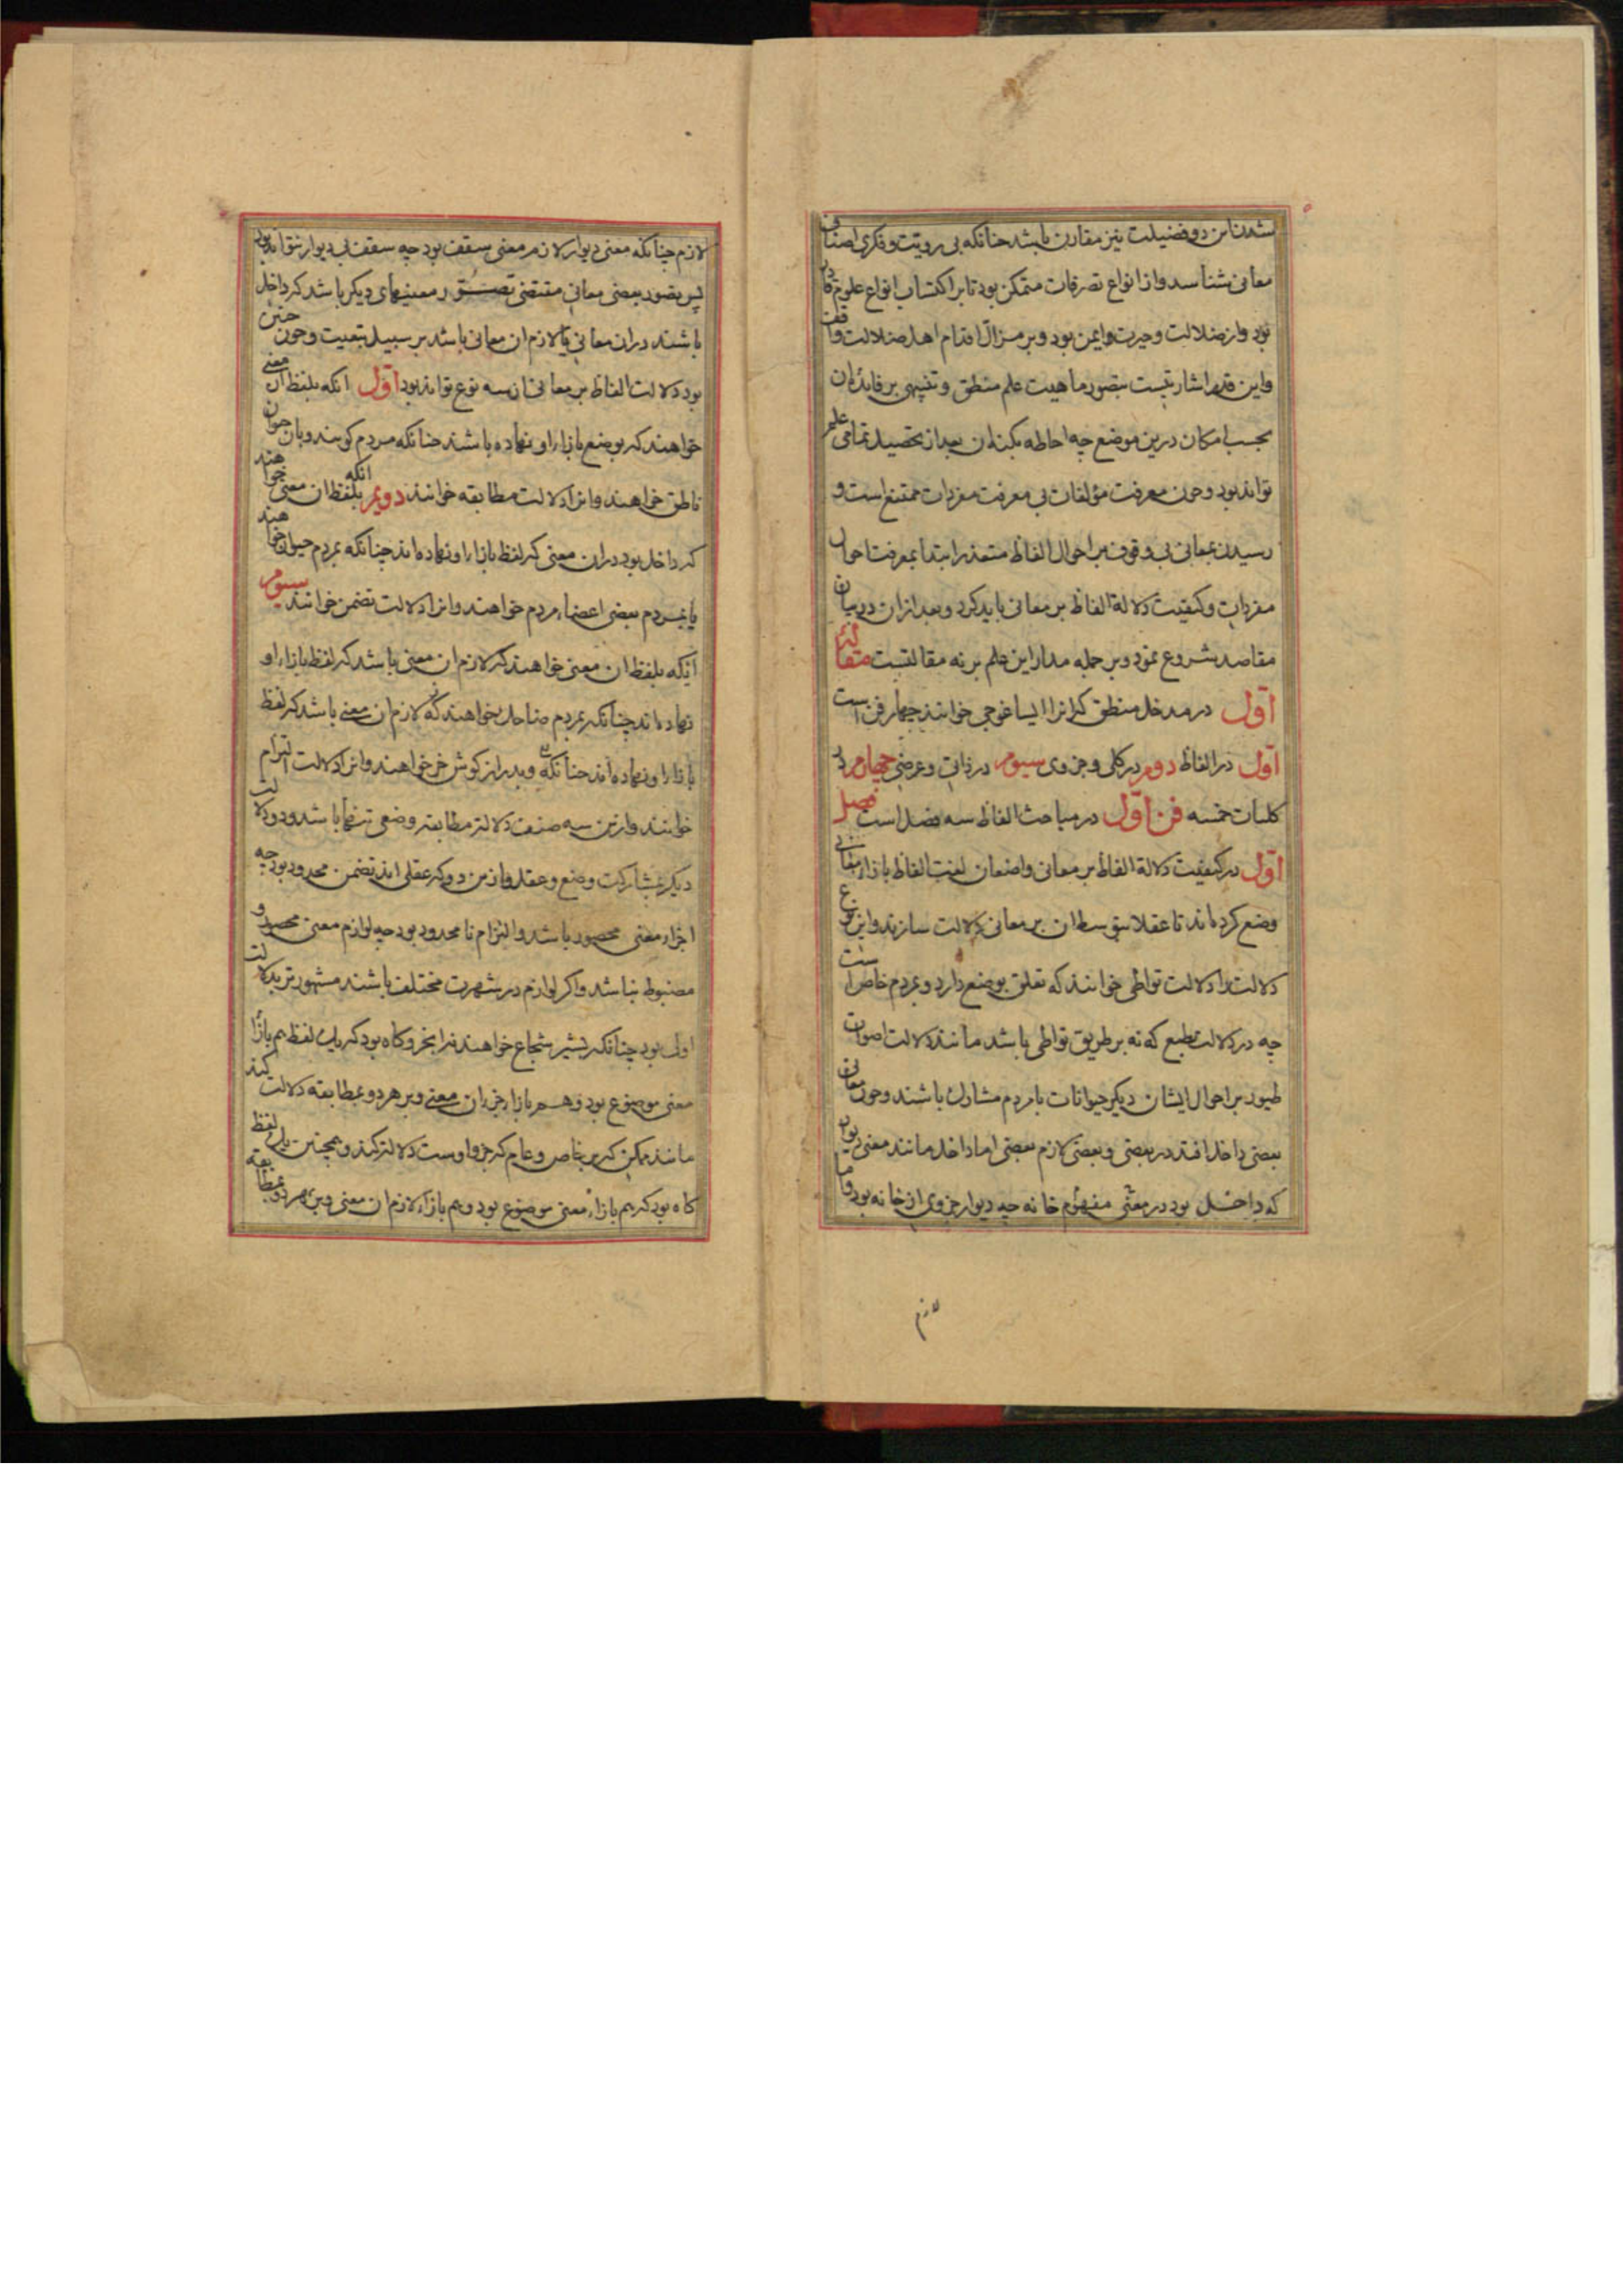 شدن این دو فضیلت نیز مقارن باشد چنانکه بی رویت و فکری اصناف
معانی شناسد و از انواع تصرفات متمکن بود تا بر اکتساب انواع علوم قادر
بود و از ضلالت و حیرت ایمن بود و بر مزال اقدام اهل ضلالت واقف
و این قدر اشارتیست بتصور ماهیت علم منطق و تنبیهی بر فایده آن
بحسب امکان درین موضع چه احاطه بکنه آن بعد از تحصیل تمامی علم
تواند بود و چون معرفت مؤلفات بی معرفت مفردات ممتنع است و
رسیدن بمعانی بی وقوف بر احوال الفاظ متعذر ابتدا بمعرفت احوال
مفردات و کیفیت دلالة الفاظ بر معانی باید کرد و بعد از آن در بیان
مقاصد شروع نمود و بر جمله مدار این علم بر نه مقالتست مقالهٔ
اول در مدخل منطق که آنرا ایساغوجی خوانند چهار فن است
اول در الفاظ دوم در کلی و جزوی سیوم در ذاتی و عرضی چهارم در
کلیات خمسه فن اول در مباحث الفاظ سه فصل است فصل
اول در کیفیت دلالة الفاظ بر معانی واضعان لغت الفاظ بازاء معانی
وضع کرده اند تا عقلا بتوسط آن بر معانی دلالت سازند و این نوع
دلالت را دلالت تواطی خوانند که تعلق بوضع دارد و بمردم خاص است
چه در دلالت بطبع که نه بر طریق تواطی باشد مانند دلالت اصوات
طیور بر احوال ایشان دیگر حیوانات با مردم مشارک باشند و چون معانی
بعضی داخل افتد در بعضی و بعضی لازم بعضی اما داخل مانند معنی دیوار
که داخل بود در معنی مفهوم خانه چه دیوار جزوی از خانه بود و اما
لازم
لازم چنانکه معنی دیوار لازم معنی سقف بود چه سقف بی دیوار نتواند بود
پس تصور بعضی معانی مقتضی تصور معنیهای دیگر باشد که داخل
باشند در آن معانی یا لازم آن معانی باشد بر سبیل تبعیت و چون چنین
بود دلالت الفاظ بر معانی از سه نوع تواند بود اول آنکه بلفظ آن معنی
خواهند که بوضع بازاء او نهاده باشند چنانکه مردم گویند و بان حیوان
ناطق خواهند و آنرا دلالت مطابقه خوانند دویم آنکه بلفظ آن معنی خواهند
که داخل بود در آن معنی که لفظ بازاء او نهاده اند چنانکه بمردم حیوان خواهند
یا بمردم بعضی اعضاء مردم خواهند و آنرا دلالت تضمن خوانند سیوم
آنکه بلفظ آن معنی خواهند که لازم آن معنی باشد که لفظ بازاء او
نهاده اند چنانکه بمردم ضاحک خواهند که لازم آن معنی باشد که لفظ
بازاء او نهاده اند چنانکه و بدراز گوش خر خواهند و آنرا دلالت التزام
خوانند و ازین سه صنف دلالت مطابقه وضعی تنها باشد و دو دلالت
دیگر بمشارکت وضع و عقل و ازین دو که عقلی اند تضمن محدود بود چه
اجزاء معنی محصور باشد و التزام نامحدود بود چه لوازم معنی محصور و
مضبوط نباشد و اگر لوازم در شهرت مختلف باشند مشهورتر بدلالت
اولی بود چنانکه بشیر شجاع خواهند نه ابخر و گاه بود که یک لفظ هم بازاء
معنی موضوع بود و هم بازاء جزء آن معنی و بر هر دو بمطابقه دلالت کند
مانند ممکن که بر خاص و عام که جزو اوست دلالت کند و همچنین یک لفظ
گاه بود که هم بازاء معنی موضوع بود و هم بازاء لازم آن معنی و بر هر دو بمطابقه